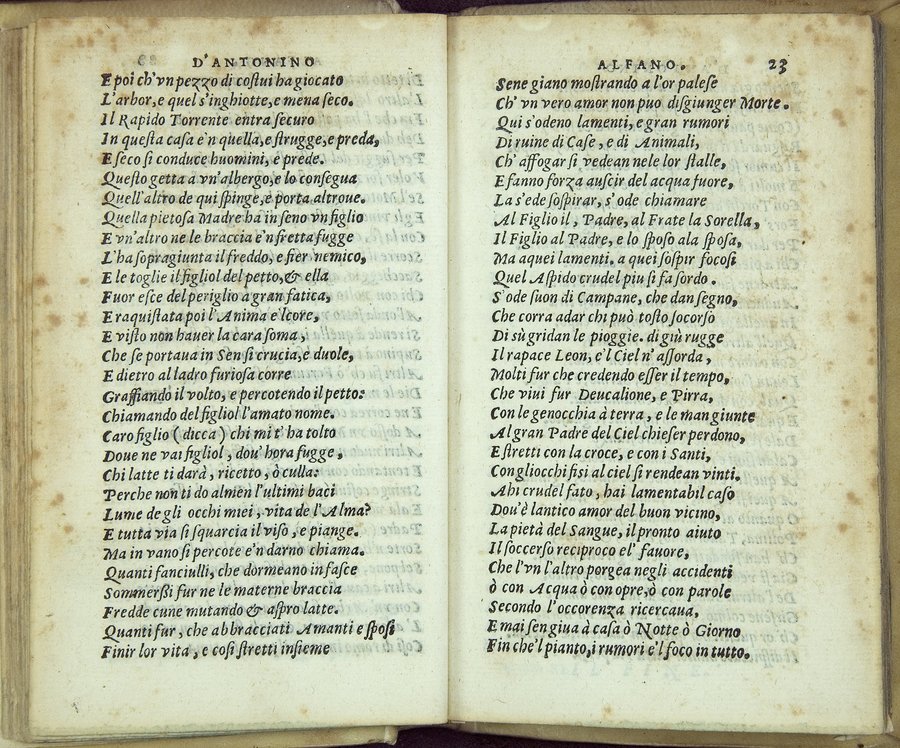 D'ANTONINO
E poi ch'vn pezzo di costui ha giocato
L'arbor, e quel s'inghiotte, e mena seco.
Il Rapido Torrente entra securo
In questa casa e'n quella, e strugge, e preda,
E seco si conduce huomini, e prede.
Questo getta a vn'albergo, e lo consegua
Quell'altro de qui spinge, e porta altroue.
Quella pietosa Madre ha in seno vn figlio
E vn'altro ne le braccia e'n fretta fugge
L'ha sopragiunta il freddo, e fier nemico,
E le toglie il figliol del petto, & ella
Fuor esce del periglio a gran fatica,
E raquistata poi l'Anima e'l core,
E visto non hauer la cara soma,
Che se portaua in Sen si crucia, e duole,
E dietro al ladro furiosa corre
Graffiando il volto, e percotendo il petto:
Chiamando del figliol l'amato nome.
Caro figlio ( dicca ) chi mi t'ha tolto
Doue ne vai figliol, dou'hora fugge,
Chi latte ti darà, ricetto, ò culla:
Perche non ti do almen l'ultimi baci
Lume de gli occhi miei, vita de l'Alma?
E tutta via si squarcia il viso, e piange.
Ma in vano si percote e'n darno chiama.
Quanti fanciulli, che dormeano in fasce
Sommersi fur ne le materne braccia
Fredde cune mutando & aspro latte.
Quanti fur, che abbracciati Amanti e sposi
Finir lor vita, e cosi stretti insieme
ALFANO. 23
Sene giano mostrando a l'or palese
Ch'vn vero amor non puo disgiunger Morte.
Qui s'odeno lamenti, e gran rumori
Di ruine di Case, e di Animali,
Ch'affogar si vedean nele lor stalle,
E fanno forza auscir del acqua fuore,
La s'ede sospirar, s'ode chiamare
Al Figlio il, Padre, al Frate la Sorella,
Il Figlio al Padre, e lo sposo ala sposa,
Ma aquei lamenti. a quei sospir focosi
Quel Aspido crudel piu si fa sordo.
S'ode suon di Campane, che dan segno,
Che corra adar chi può tosto socorso
Di sù gridan le pioggie. di giù rugge
Il rapace Leon, e'l Ciel n'assorda,
Molti fur che credendo esser il tempo,
Che viui fur Deucalione, e Pirra,
Con le genocchia à terra, e le man giunte
Al gran Padre del Ciel chieser perdono,
E stretti con la croce, e con i Santi,
Con gliocchi fisi al ciel si rendean vinti.
Ahi crudel fato, hai lamentabil caso
Dou'è lantico amor del buon vicino,
La pietà del Sangue, il pronto aiuto
Il soccerso reciproco el' fauore,
Che l'vn l'altro porgea negli accidenti
ò con Acqua ò con opre, ò con parole
Secondo l'occorenza ricercaua,
E mai sen giua à casa ò Notte ò Giorno
Fin che'l pianto, i rumori e'l foco in tutto.